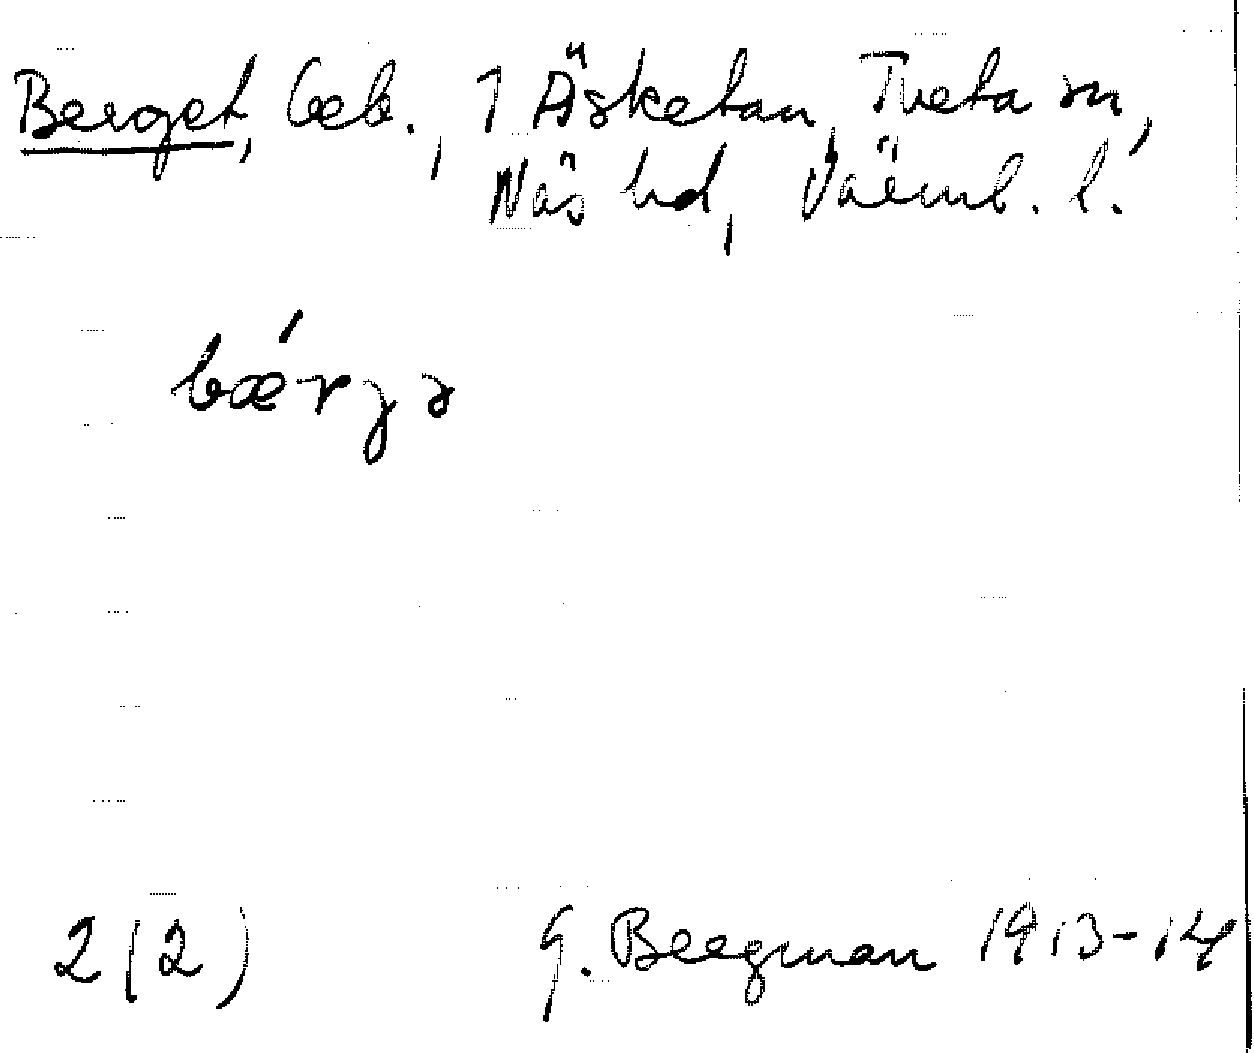 Berget, beb., 1 Äsketan, Tveta sn,
Näs hd, Värml. l.
bǽrjə
2(2) G. Bergman 1913-14